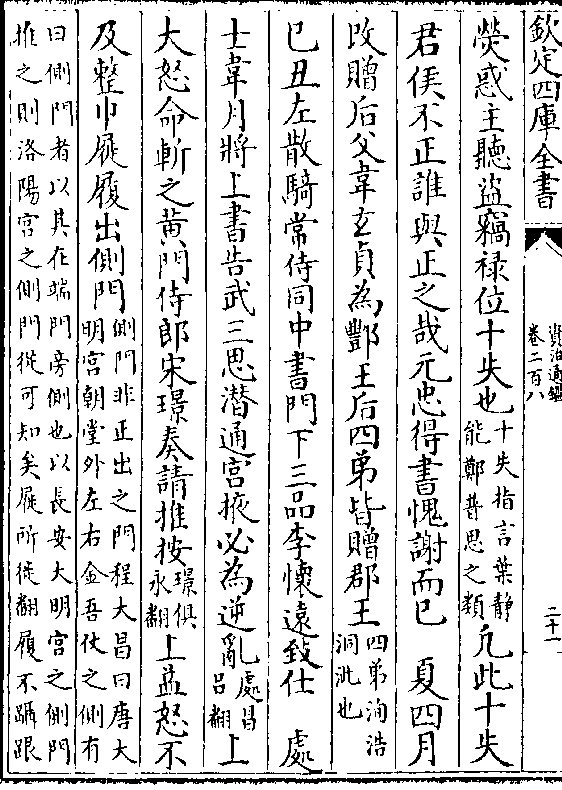 欽定四庫全書
資治通鑑
卷二百八
二十一
熒惑主聽盜竊祿位十失也十失指言葉静能鄭普思之類凡此十失
君侯不正誰與正之哉元忠得書愧謝而已　夏四月
改贈后父韋玄貞為酆王后四弟皆贈郡王四弟洵浩洞泚也
己丑左散騎常侍同中書門下三品李懷遠致仕　處
士韋月將上書告武三思潛通宮掖必為逆亂處昌呂翻上
大怒命斬之黄門侍郎宋璟奏請推按璟俱永翻上益怒不
及整巾屣履出側門側門非正出之門程大昌曰唐大明宮朝堂外左右金吾仗之側有
曰側門者以其在端門旁側也以長安大明宮之側門
推之則洛陽宮之側門從可知矣屣所徙翻履不躡跟